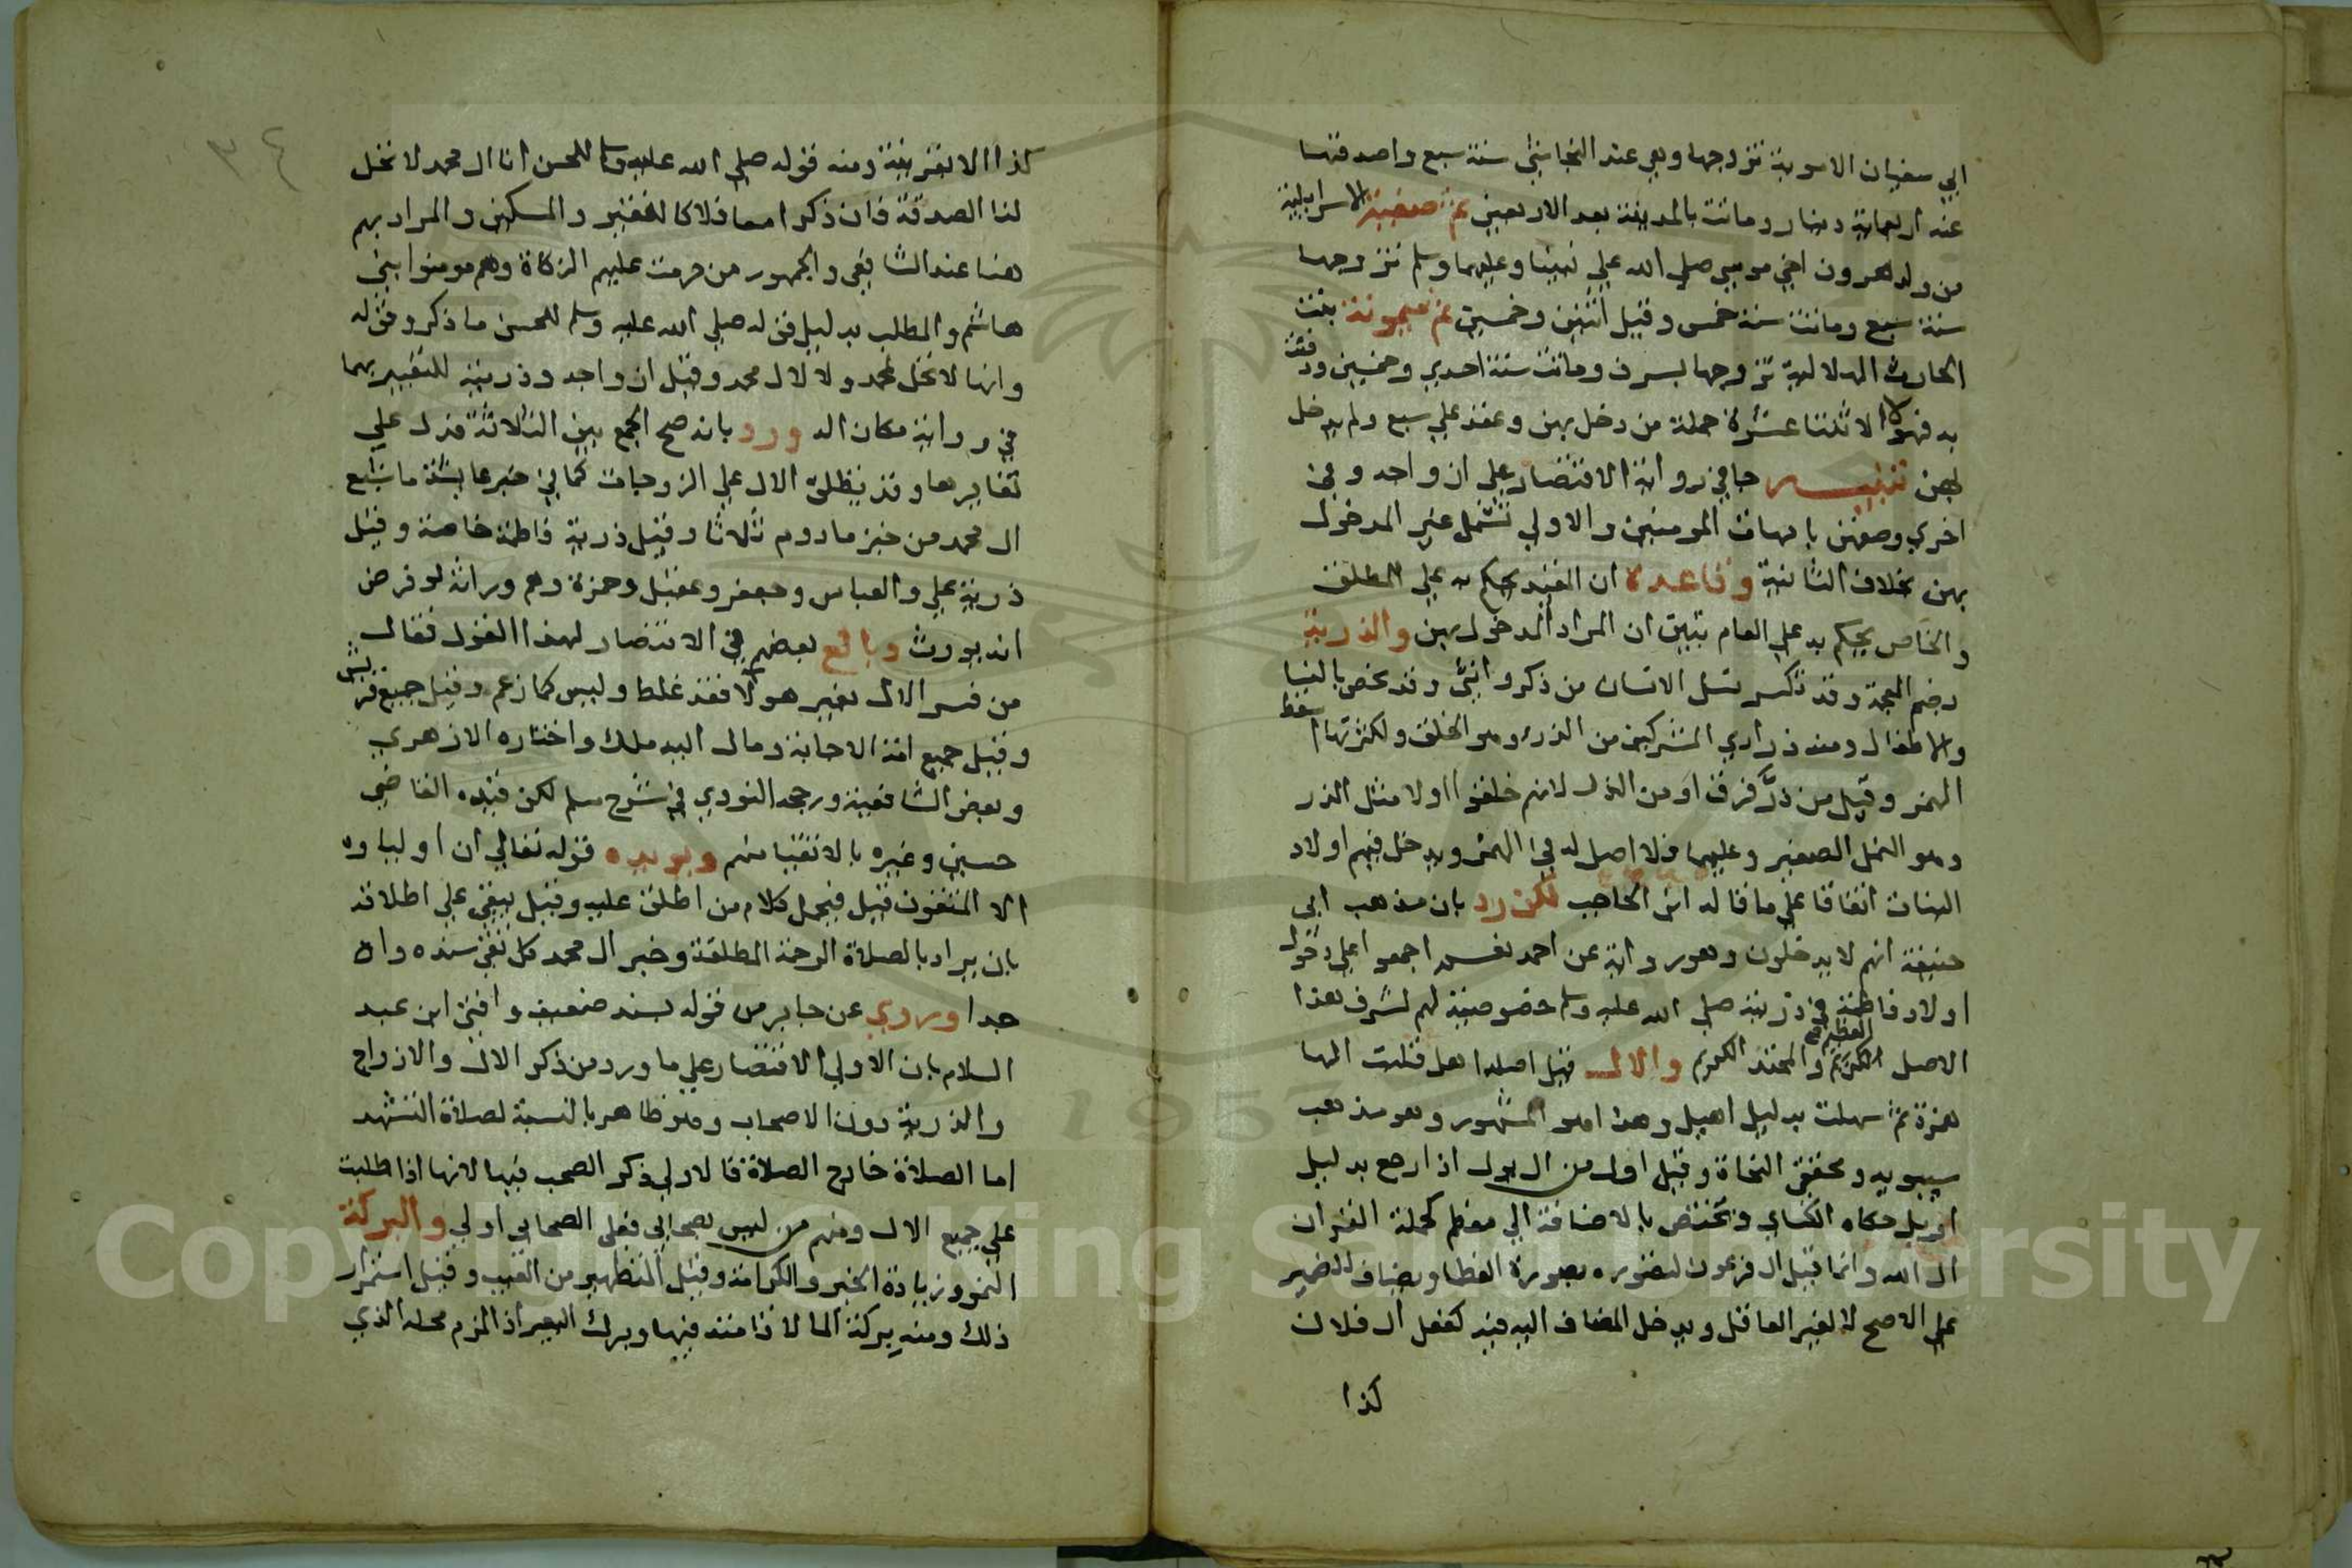 ابي سفيان الاموية تزوجها وهي عند النجاشي سنة سبع واصدقها
عنه اربعماية دينار وماتت بالمدينة بعد الاربعين ثم صفية الاسرايلية
من ولد هرون اخي موسي صلي الله علي نبينا وعليهما وسلم تزوجها
سنة سبع وماتت سنة خمس وقيل اثنين وخمسين ثم ميمونة بنت
الحارث الهلالية تزوجها بسرف وماتت سنة احدي وخمسين ودفنت
به فهولا الاثنتا عشرة جملة من دخل بهن وعقد علي سبع ولم يدخل
بهن تنبيه جا في رواية الاقتصار علي ازواجه وفي
اخري وصفهن بامهات المومنين والاولي تشمل غير المدخول
بهن بخلاف الثانية وقاعدة ان المقيد يحكم به علي المطلق
والخاص يحكم به علي العام تبين ان المراد المدخول بهن والذرية
بضم المعجمة وقد تكسر نسل الانسان من ذكر وانثي وقد تخص بالنسا
والاطفال ومنه ذراري المشركين من الذرء وهو الخلق ولكثرتها اسقط
الهمز وقيل من ذر فرق او من الذر لانهم خلقوا اولا مثل الذر
وهو النمل الصغير وعليهما فلا اصل له في الهمز ويدخل فيهم اولاد
البنات اتفاقا علي ما قاله ابن الحاجب لكن رد بان مذهب ابي
حنيفة انهم لا يدخلون وهو رواية عن احمد نعم اجمعوا علي دخول
اولاد فاطمة في ذريته صلي الله عليه وسلم خصوصية لهم لشرف هذا
الاصل العظيم والمحتد الكريم والال قيل اصلها اهل قلبت الها
همزة ثم سهلت بدليل اهيل وهذا هو المشهور وهو مذهب
سيبويه ومحققي النحاة وقيل اول من ال يول اذا رجع بدليل
اويل حكاه الكساي وتختص بالاضافة الي معظم كحملة القران
ال الله وانما قيل ال فرعون لتصوره بصورة العظما ويضاف للضمير
علي الاصح لا لغير العاقل ويدخل المضاف اليه فيه كفعل ال فلان
كذا
٣٤
كذا الا بقرينة ومنه قوله صلي الله عليه وسلم للحسن انا ال محمد لا تحل
لنا الصدقة فان ذكرا معا فلا كالفقير والمسكين والمراد بهم
هنا عند الشافعي والجمهور من حرمت عليهم الزكاة وهم مومنوا بني
هاشم والمطلب بدليل قوله صلي الله عليه وسلم للحسن ما ذكر وقوله
وانها لا تحل لمحمد ولا لال محمد وقيل ازواجه وذريته للتعبير بهما
في رواية مكان اله ورد بانه صح الجمع بين الثلاثة فدل علي
تغايرها وقد يطلق الال علي الزوجات كما في خبر عايشة ما شبع
ال محمد من خبز مادوم ثلاثا وقيل ذرية فاطمة خاصة وقيل
ذرية علي والعباس وجعفر وعقيل وحمزة وهم وراثه لو فرض
انه يورث وبالغ بعضهم في الانتصار لهذا القول فقال
من فسر الال بغير هولا فقد غلط وليس كما زعم وقيل جميع قريش
وقيل جميع امة الاجابة ومال اليه ملك واختاره الازهري
وبعض الشافعية ورجحه النووي في شرح مسلم لكن قيده القاضي
حسين وغيره بالاتقيا منهم ويويده قوله تعالي ان اولياوه
الا المتقون قيل فيحمل كلام من اطلق عليه وقيل يبقي علي اطلاقه
بان يراد بالصلاة الرحمة المطلقة وخبر ال محمد كل تقي سنده واه
جدا وروي عن جابر من قوله بسند ضعيف وافتي ابن عبد
السلام بان الاولي الاقتصار علي ما ورد من ذكر الال والازواج
والذرية دون الاصحاب وهو ظاهر بالنسبة لصلاة التشهد
اما الصلاة خارج الصلاة فالاولي ذكر الصحب فيها لانها اذا طلبت
علي جميع الال ومنهم من ليس بصحابي فعلي الصحابي اولي والبركة
النمو وزيادة الخير والكرامة وقيل التطهير من العيب وقيل استمرار
ذلك ومنه بركة الما لاقامته فيها وبرك البعير اذ الزم محله الذي